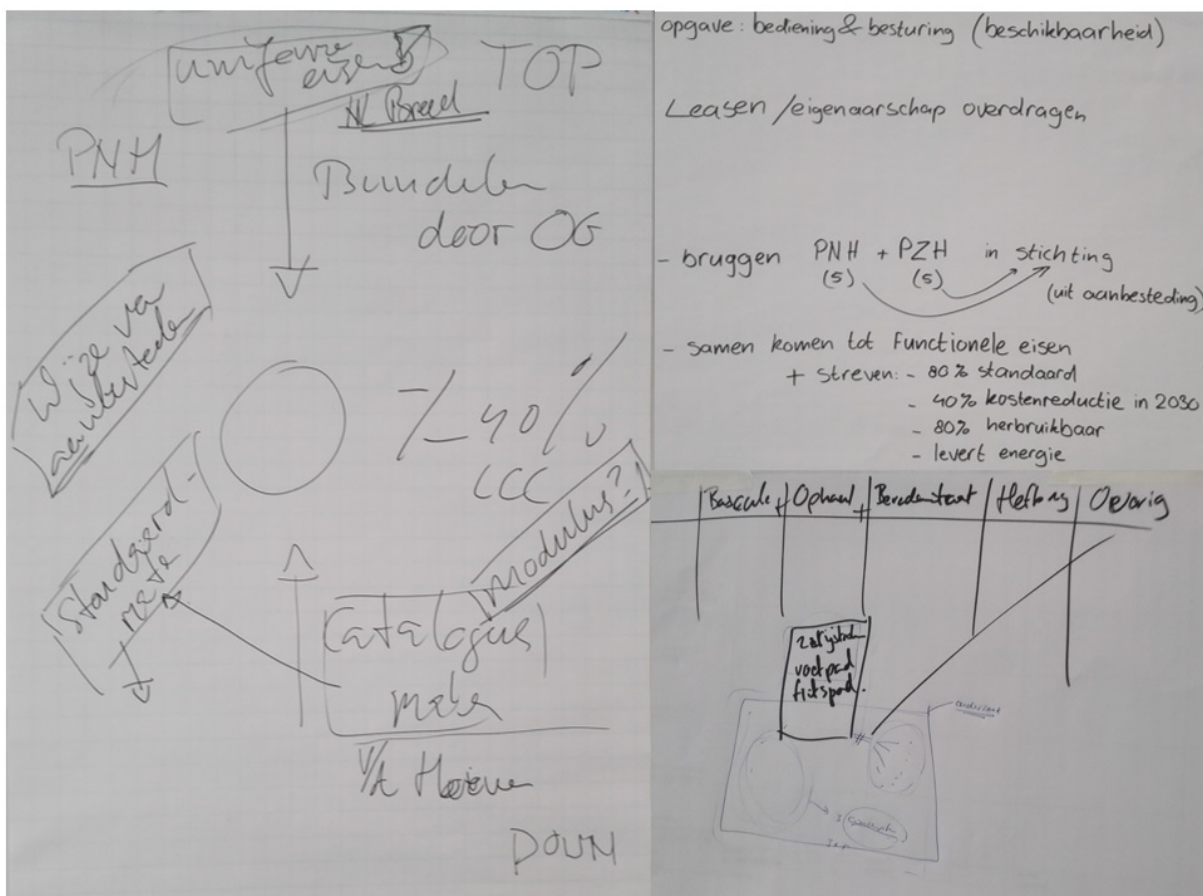 uniforme
eisen
NL Breed
TOP
PNH
Bundelen
door OG
Wijze van
aanbesteden
-40%
LCC
Modulus?
Standaard-
Catalogus
DOWN
opgave: bediening & besturing (beschikbaarheid)
Leasen / eigenaarschap overdragen
- bruggen PNH + PZH in stichting
(5) (5) (uit aanbesteding)
- samen komen tot functionele eisen
+ streven: - 80% standaard
- 40% kostenreductie in 2030
- 80% herbruikbaar
- levert energie
Bascule Ophaal Hefbrug Overig
voetpad
fietspad.